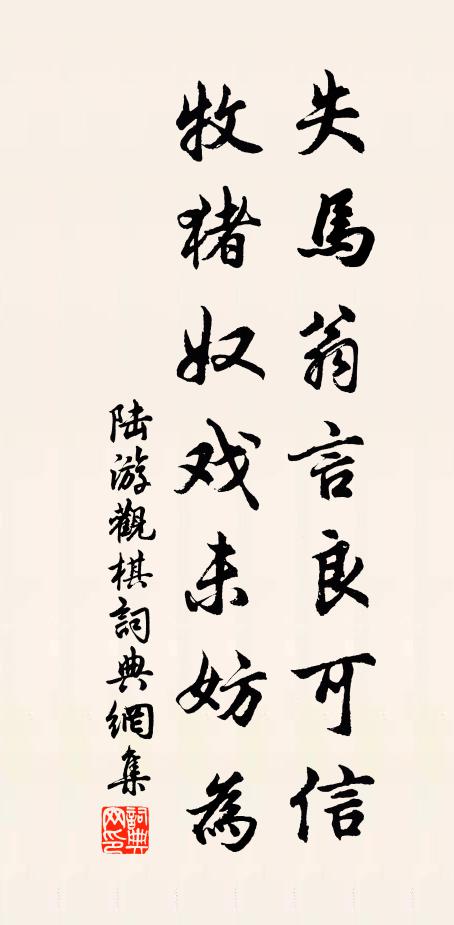 失馬翁言良可信
牧猪奴戏未妨為
陆游觀棋詞典網集
詞典網印